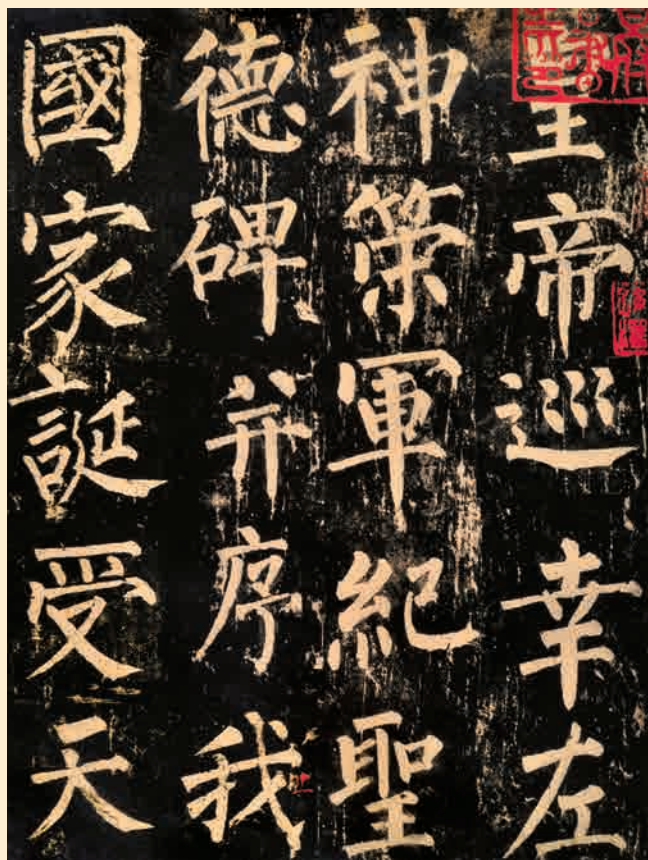 皇帝巡幸左
神策軍紀聖
德碑并序我
國家誕受天